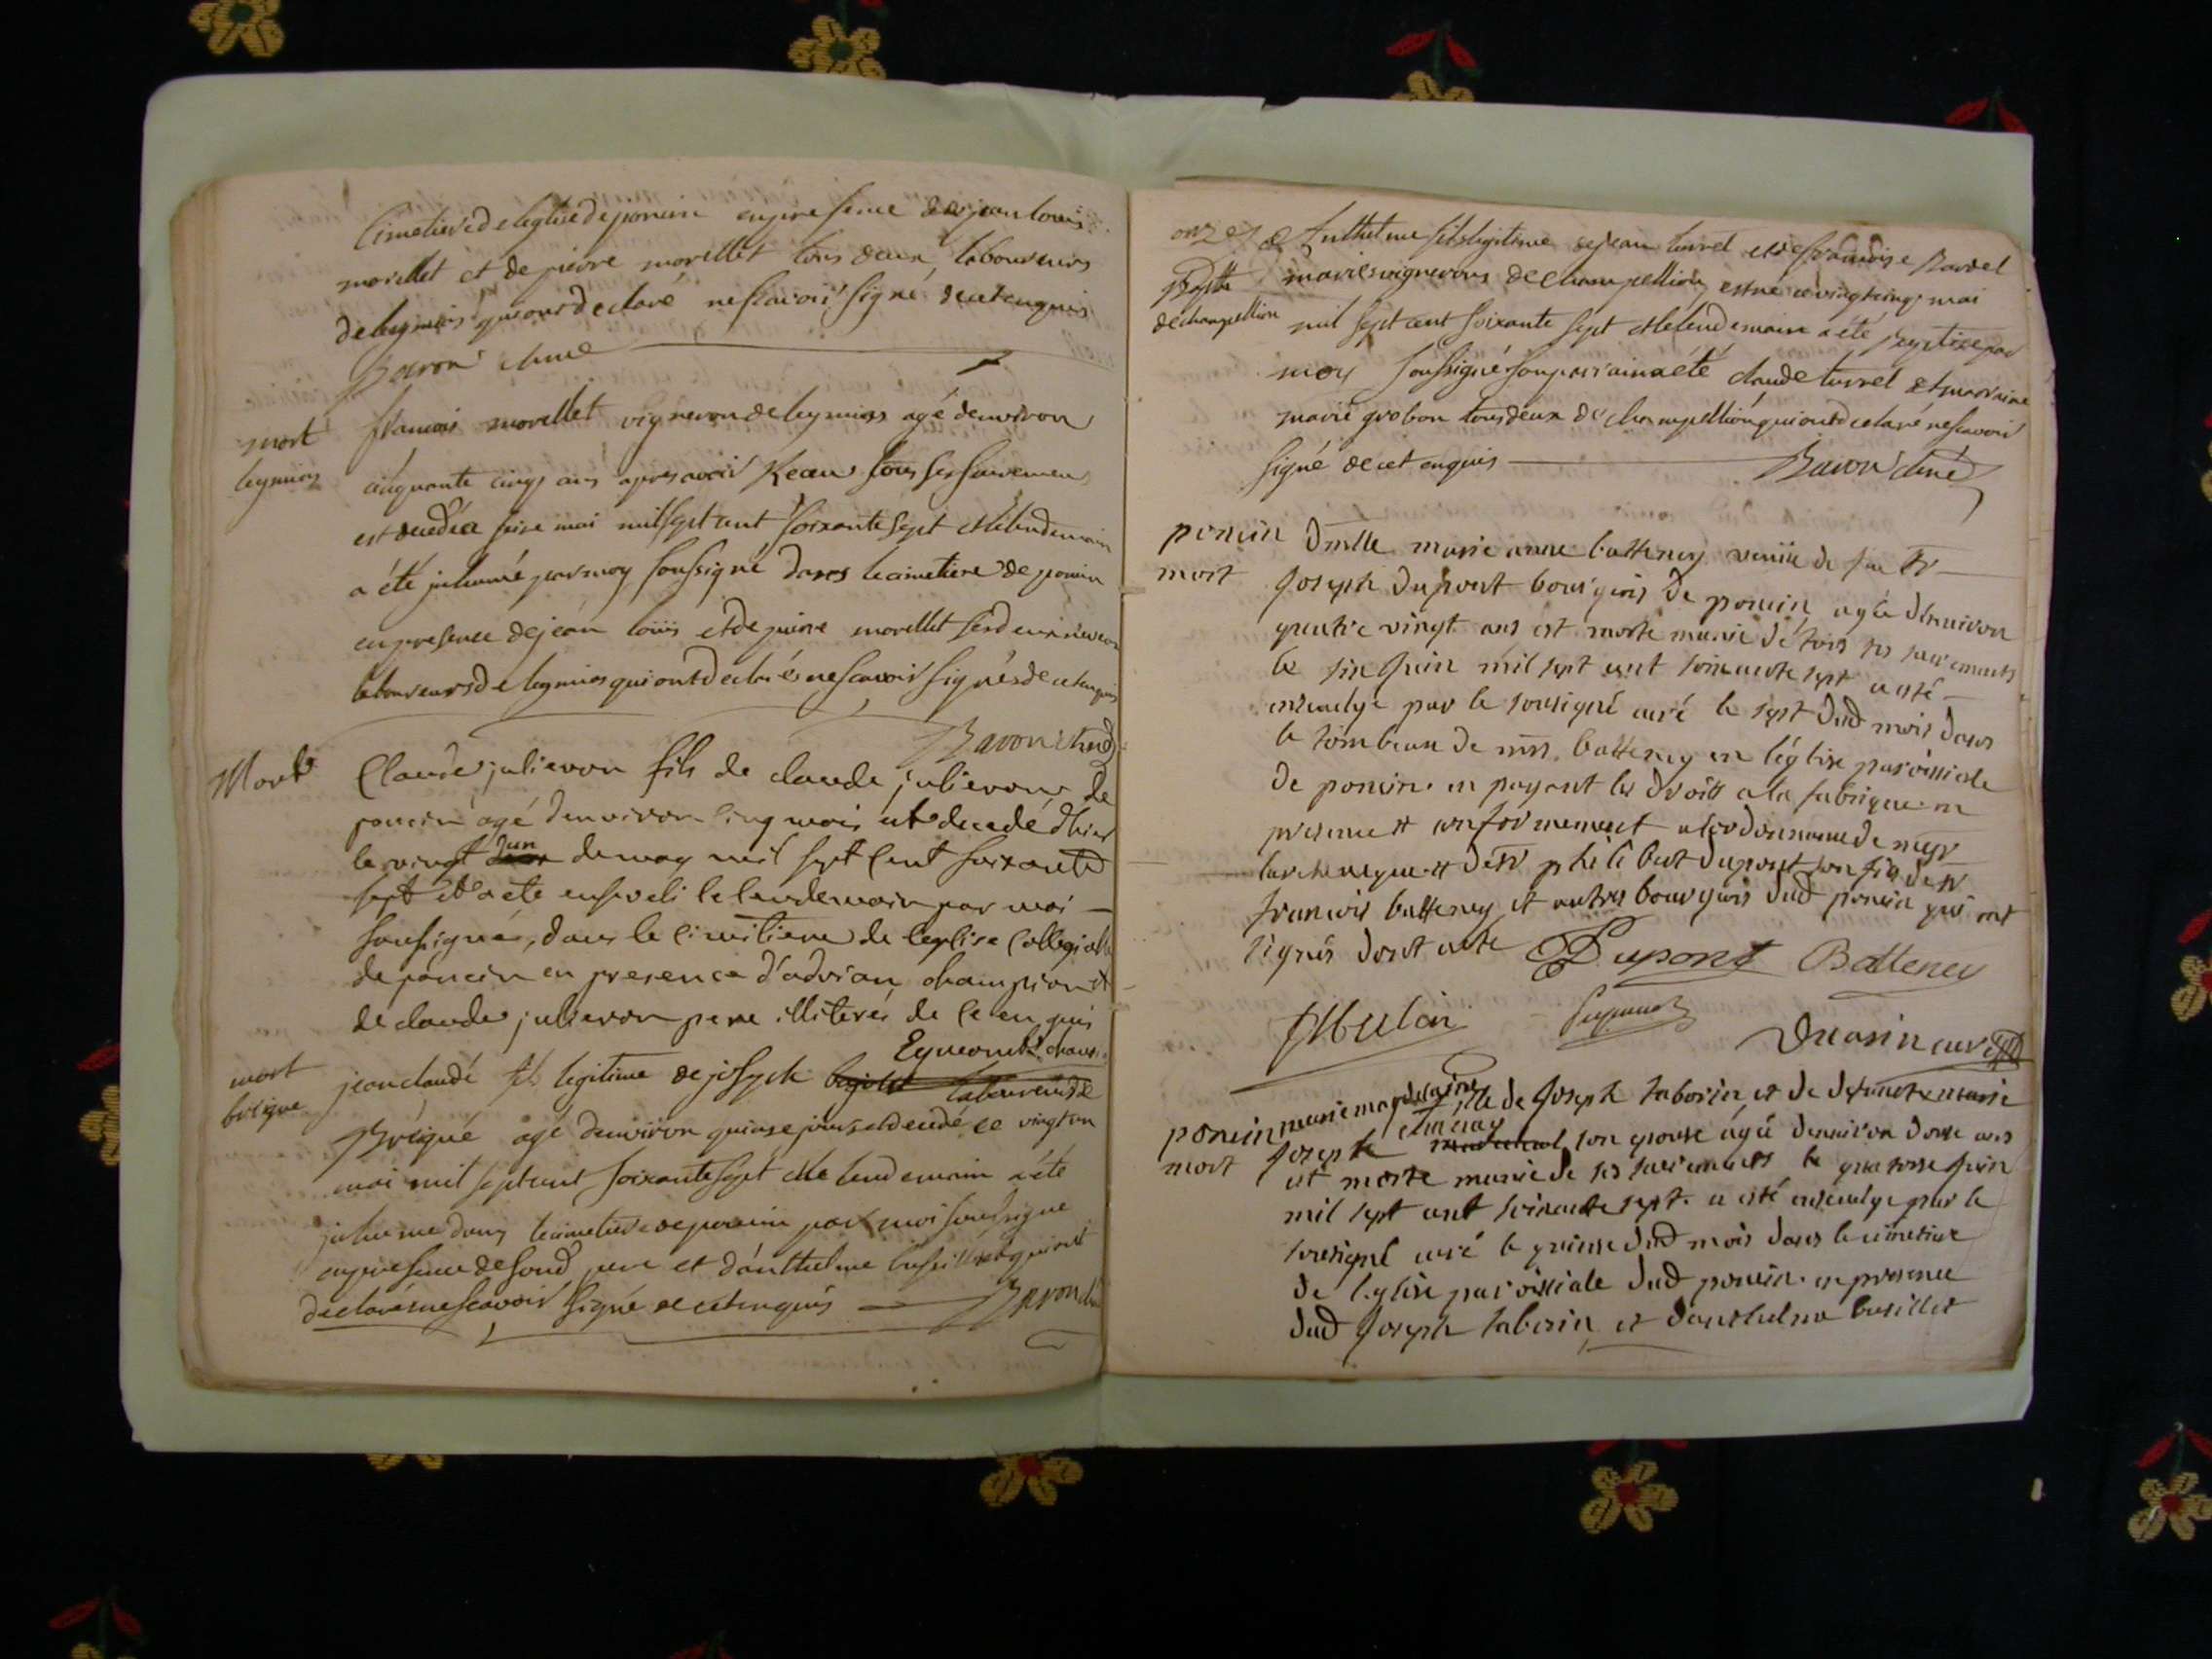 Cimetiere de leglise de poncin en presence de jean louis
morellet et de pierre morellet tous deux laboureurs
de leymias qui ont declaré ne scavoir signé de ce enquis
Baron curé
mort
leymias
francois morellet vigneron de leymias agé denviron
cinquante cinq ans apres avoir Receu tous ses sacremen
est decedé ce seize mai mil sept cent soixante sept et le lendemain
a été inhumé par moy soussigné dans le cimetiere de poncin
en presence de jean loüis et de pierre morellet ses deux neveux
laboureurs de leymias qui ont declarés ne scavoir signés de ce enquis
Baron curé
Mort
Claude julieron fils de claude julieron de
poncin agé denviron cinq mois est decedé d'hier
le vingt un de may mil sept cent soixante
sept et a ete enseveli le lendemain par moi
soussigné, dans le cimitiere de leglise collegialle
de poncin en presence d'adrian champion et
de claude julieron pere illiterés de ce enquis
mort
brigne
jean claude fils legitime de joseph
laboureur de
Brégné agé denviron quinze jours est decedé ce vingt un
mai mil sept cent soixante sept et le lendemain a été
inhumé dans le cimetiere de poncin par moi soussigné
en presence de soud pere et d'anthelme busillet qui ont
declarés ne scavoir signé de ce enquis Baron curé
onze
Bapte
de champellion
Anthelme fils legitime de jean turrel et de francoise
mariés vignerons de champellion est né ce vingt cinq mai
mil sept cent soixante sept et le lendemain a été baptizé par
moy soussigné son parrain a été claude turrel et marraine
marie grobon tous deux de champellion qui ont declaré ne scavoir
signé de ce enquis Baron curé
poncin
mort
Dmlle marie anne batteney veuüe de feu sr
Joseph Dupont bourgeois de poncin agée denviron
quatre vingt ans est morte munie de tous ses sacrements
le six Juin mil sept cent soixante sept a esté
ensevelye par le sousigné curé le sept dud mois dans
le tombeau de mrs. batteney en l'église paroissiale
de poncin. en payant les droits a la fabrique en
presence et conformement a lordonnance de mgr
larcheveque et de sr philibert dupont son fils de sr
francois batteney et autres bourgeois dud poncin qui ont
signés dont acte Dupont Batteney
Dupont
Ducasin curé
poncin
mort
marie magdelaine
fille de Joseph taborin et de defuncte marie
Joseph son epouse agée denviron douze ans
est morte munie de ses sacrements le quatorze Juin
mil sept cent soixante sept. a esté ensevelye par le
sousigné curé le quinze dud mois dans le cimetiere
de l'eglise paroissiale dud poncin. en presence
dud Joseph taborin et danthelme busillet